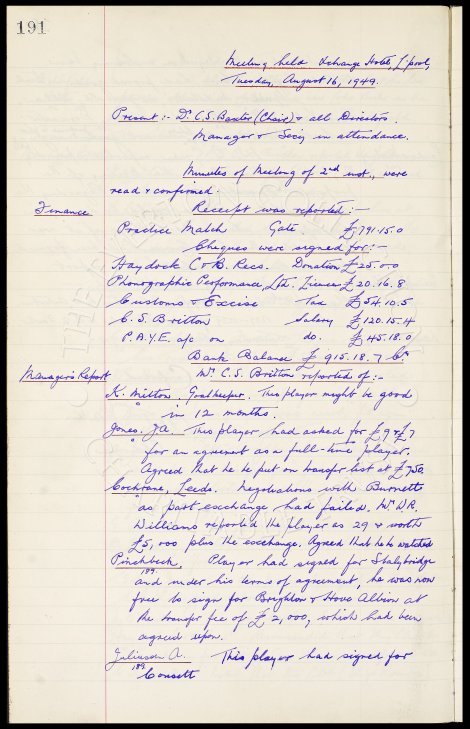 191
Meeting held Exchange Hotel, L'pool,
Tuesday, August 16, 1949.
Present :- Dr. C.S. Baxter (Chair) & all Directors.
Manager & Secy in attendance.
Minutes of Meeting of 2nd inst., were
read & confirmed.
Finance Receipt was reported :-
Practice Match Gate £791.15.0
Cheques were signed for :-
Haydock C & B. Recs. Donation £25.0.0
Phonographic Performance, Ltd. Licence £20.16.8
Customs & Excise Tax £54.10.5
C.S. Britton Salary £120.15.4
P.A.Y.E. a/c on do. £45.18.0
Bank Balance £915.18.7 Cr.
Manager's Report Mr. C.S. Britton reported of :-
K. Milton, Goalkeeper. This player might be good
in 12 months.
Jones. J.A. This player had asked for £9 & £7
for an agreement as a full-time player.
Agreed that he be put on transfer list at £750
Cochrane, Leeds. Negotiations with Burnett
as part-exchange had failed. Mr. W.R.
Williams reported the player as 29 & worth
£5,000 plus the exchange. Agreed that he be watched
Pinchbeck, Player had signed for Stalybridge
189.
and under his terms of agreement, he was now
free to sign for Brighton & Hove Albion at
the transfer fee of £2,000, which had been
agreed upon.
A. This player had signed for
189.
Consett